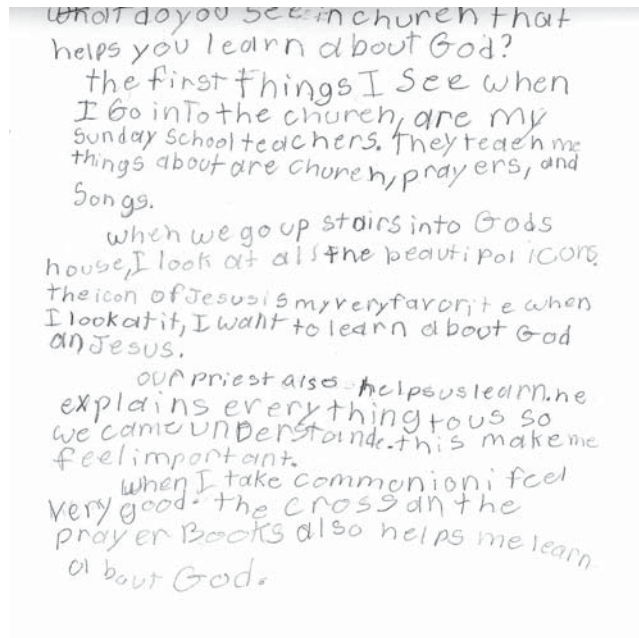 What do you see in church that
helps you learn about God?
the first things I see when
I Go into the church, are my
Sunday School teachers. They teach me
things about are church, prayers, and
Songs.
when we go up stairs into Gods
house, I look at all the beautipol icons.
the icon of Jesus is my very favorite when
I look at it, I want to learn about God
an Jesus.
our priest also helps us learn. he
explains everything to us so
we came unDerstainde. this make me
feel important.
when I take communion i feel
very good. the cross an the
prayer Books also helps me learn
about God.